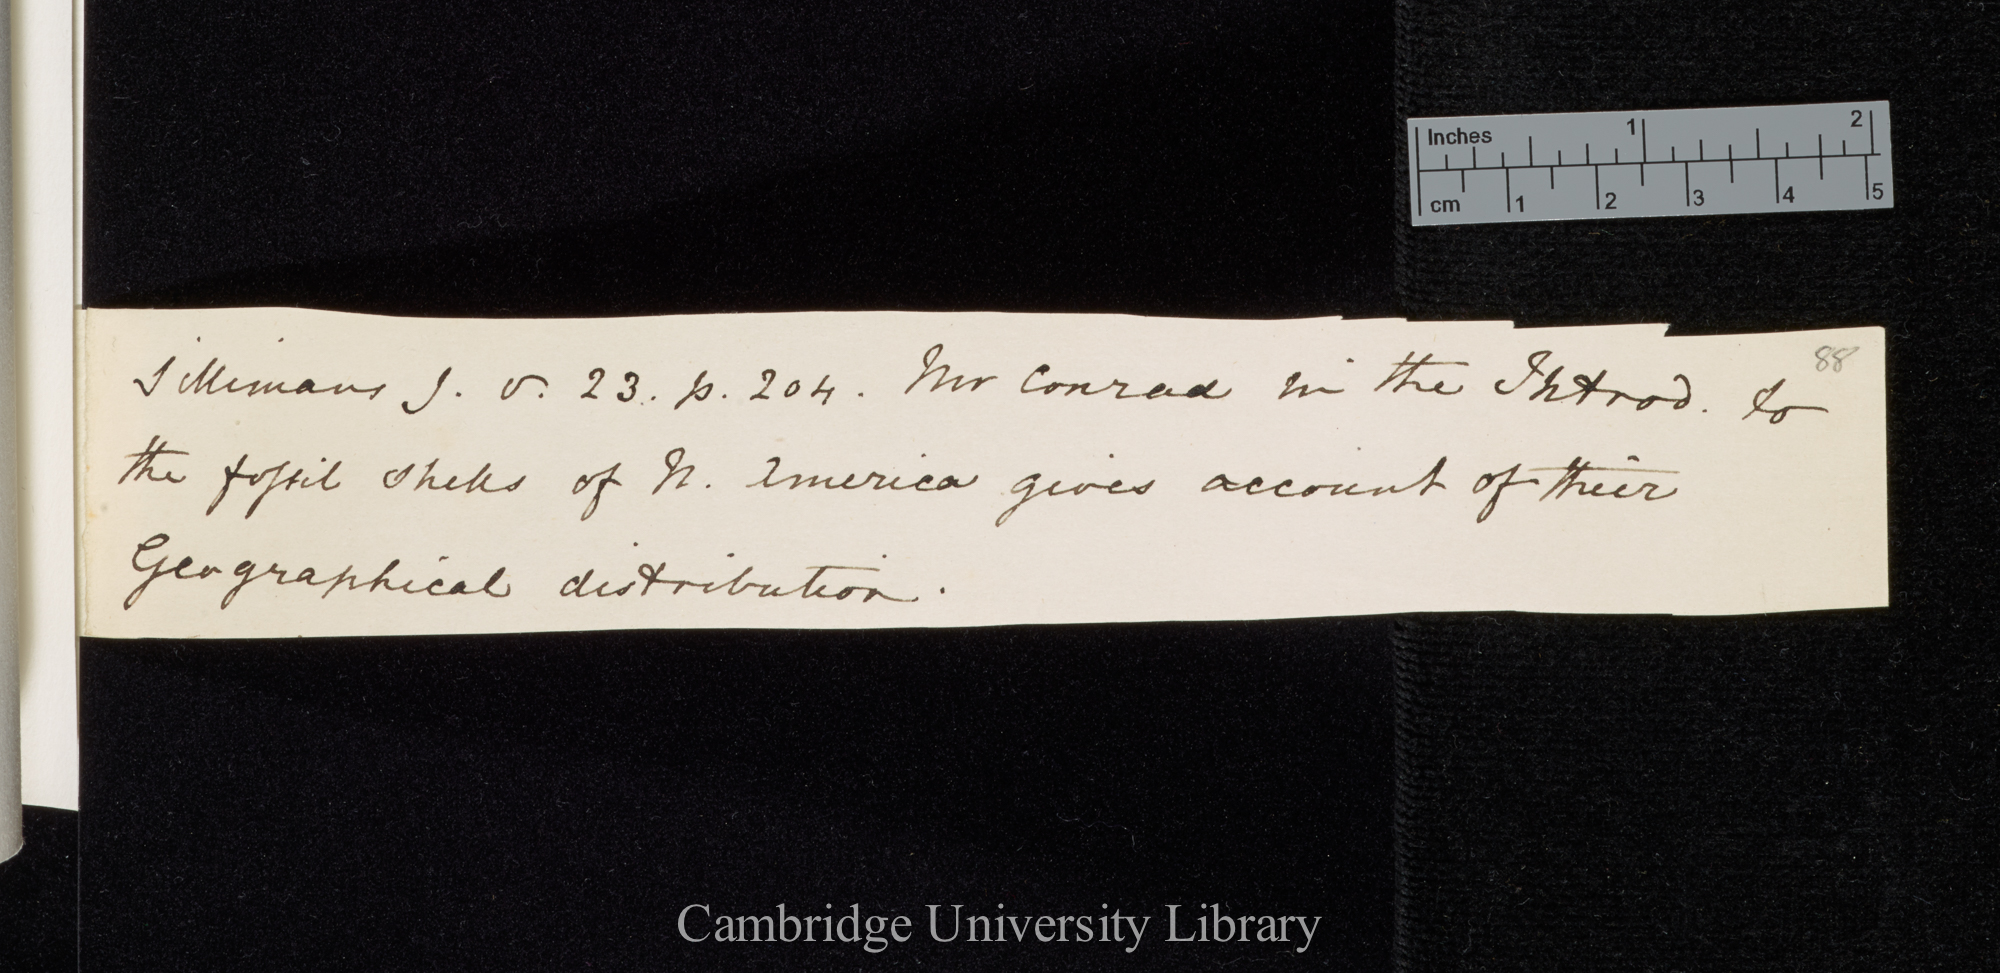 88
Sillimans J. v. 23. p. 204. Mr Conrad in the Introd. to
the fossil shells of N. America gives account of their
Geographical distribution.
Inches 1 2
cm 1 2 3 4 5
Cambridge University Library